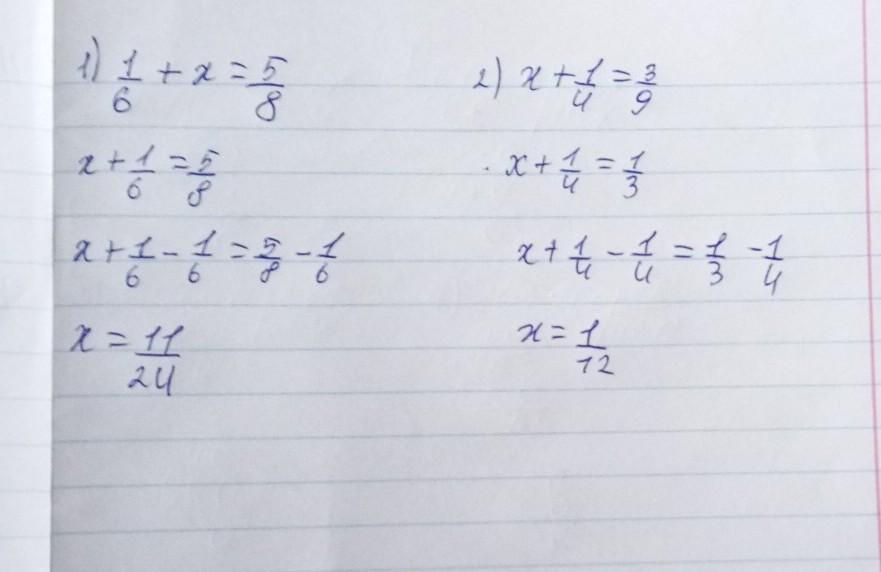 1) 1/6 + x = 5/8
x + 1/6 = 5/8
x + 1/6 - 1/6 = 5/8 - 1/6
x = 11/24
2) x + 1/4 = 3/9
x + 1/4 = 1/3
x + 1/4 - 1/4 = 1/3 - 1/4
x = 1/12